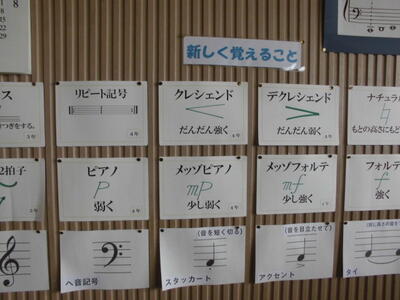 8
新しく覚えること
リピート記号
4年
クレシェンド
だんだん強く
4年
デクレシェンド
だんだん弱く
ナチュラル
もとの高さにもど
2拍子
ピアノ
p
弱く
メッゾピアノ
mp
少し弱く
メッゾフォルテ
mf
少し強く
フォルテ
f
強く
ヘ音記号
(音を短く切る)
スタッカート
(音を目立たせて)
アクセント
タイ